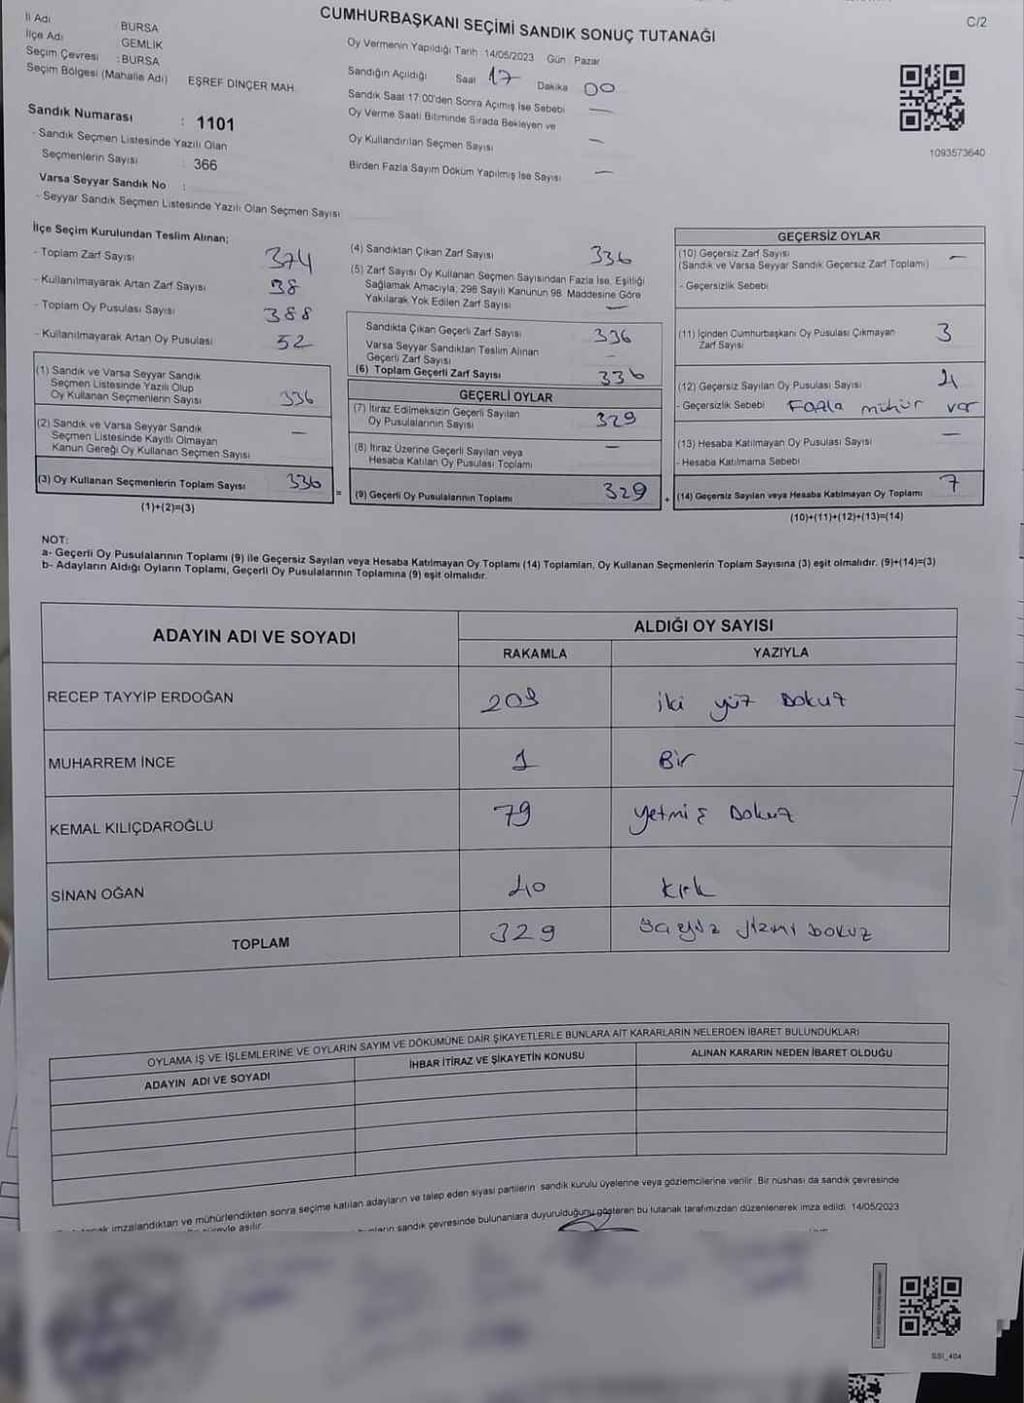 CUMHURBAŞKANI SEÇİMİ SANDIK SONUÇ TUTANAĞI
C/2
İl Adı : BURSA
İlçe Adı : GEMLİK
Seçim Çevresi : BURSA
Seçim Bölgesi (Mahalle Adı) EŞREF DİNÇER MAH.
Sandık Numarası : 1101
- Sandık Seçmen Listesinde Yazılı Olan
Seçmenlerin Sayısı : 366
Varsa Seyyar Sandık No :
- Seyyar Sandık Seçmen Listesinde Yazılı Olan Seçmen Sayısı
Oy Vermenin Yapıldığı Tarih 14/05/2023 Gün : Pazar
Sandığın Açıldığı Saat 17 Dakika 00
Sandık Saat 17:00'den Sonra Açımış İse Sebebi —
Oy Verme Saati Bitiminde Sırada Bekleyen ve
Oy Kullandırılan Seçmen Sayısı —
Birden Fazla Sayım Döküm Yapılmış İse Sayısı —
1093573640
İlçe Seçim Kurulundan Teslim Alınan;
- Toplam Zarf Sayısı 374
- Kullanılmayarak Artan Zarf Sayısı 38
- Toplam Oy Pusulası Sayısı 388
- Kullanılmayarak Artan Oy Pusulası 52
(1) Sandık ve Varsa Seyyar Sandık
Seçmen Listesinde Yazılı Olup
Oy Kullanan Seçmenlerin Sayısı 336
(2) Sandık ve Varsa Seyyar Sandık
Seçmen Listesinde Kayıtlı Olmayan
Kanun Gereği Oy Kullanan Seçmen Sayısı —
(3) Oy Kullanan Seçmenlerin Toplam Sayısı 336
(1)+(2)=(3)
(4) Sandıktan Çıkan Zarf Sayısı 336
(5) Zarf Sayısı Oy Kullanan Seçmen Sayısından Fazla İse, Eşitliği
Sağlamak Amacıyla, 298 Sayılı Kanunun 98. Maddesine Göre
Yakılarak Yok Edilen Zarf Sayısı —
Sandıkta Çıkan Geçerli Zarf Sayısı 336
Varsa Seyyar Sandıktan Teslim Alınan
Geçerli Zarf Sayısı —
(6) Toplam Geçerli Zarf Sayısı 336
GEÇERLİ OYLAR
(7) İtiraz Edilmeksizin Geçerli Sayılan
Oy Pusulalarının Sayısı 329
(8) İtiraz Üzerine Geçerli Sayılan veya
Hesaba Katılan Oy Pusulası Toplamı —
= (9) Geçerli Oy Pusulalarının Toplamı 329
GEÇERSİZ OYLAR
(10) Geçersiz Zarf Sayısı —
(Sandık ve Varsa Seyyar Sandık Geçersiz Zarf Toplamı)
- Geçersizlik Sebebi
(11) İçinden Cumhurbaşkanı Oy Pusulası Çıkmayan
Zarf Sayısı 3
(12) Geçersiz Sayılan Oy Pusulası Sayısı 4
- Geçersizlik Sebebi Fazla mühür var
(13) Hesaba Katılmayan Oy Pusulası Sayısı —
- Hesaba Katılmama Sebebi
+ (14) Geçersiz Sayılan veya Hesaba Katılmayan Oy Toplamı 7
(10)+(11)+(12)+(13)=(14)
NOT:
a- Geçerli Oy Pusulalarının Toplamı (9) ile Geçersiz Sayılan veya Hesaba Katılmayan Oy Toplamı (14) Toplamları, Oy Kullanan Seçmenlerin Toplam Sayısına (3) eşit olmalıdır. (9)+(14)=(3)
b- Adayların Aldığı Oyların Toplamı, Geçerli Oy Pusulalarının Toplamına (9) eşit olmalıdır.
ADAYIN ADI VE SOYADI
ALDIĞI OY SAYISI
RAKAMLA YAZIYLA
RECEP TAYYİP ERDOĞAN 209 iki yüz Dokuz
MUHARREM İNCE 1 Bir
KEMAL KILIÇDAROĞLU 79 yetmiş Dokuz
SİNAN OĞAN 40 kırk
TOPLAM 329 üçyüz yizmi Dokuz
OYLAMA İŞ VE İŞLEMLERİNE VE OYLARIN SAYIM VE DÖKÜMÜNE DAİR ŞİKAYETLERLE BUNLARA AİT KARARLARIN NELERDEN İBARET BULUNDUKLARI
ADAYIN ADI VE SOYADI
İHBAR İTİRAZ VE ŞİKAYETİN KONUSU
ALINAN KARARIN NEDEN İBARET OLDUĞU
imzalandıktan ve mühürlendikten sonra seçime katılan adayların ve talep eden siyasi partilerin sandık kurulu üyelerine veya gözlemcilerine verilir. Bir nüshası da sandık çevresinde
asılır.
sandık çevresinde bulunanlara duyurulduğunu gösteren bu tutanak tarafımızdan düzenlenerek imza edildi. 14/05/2023
SSI_404